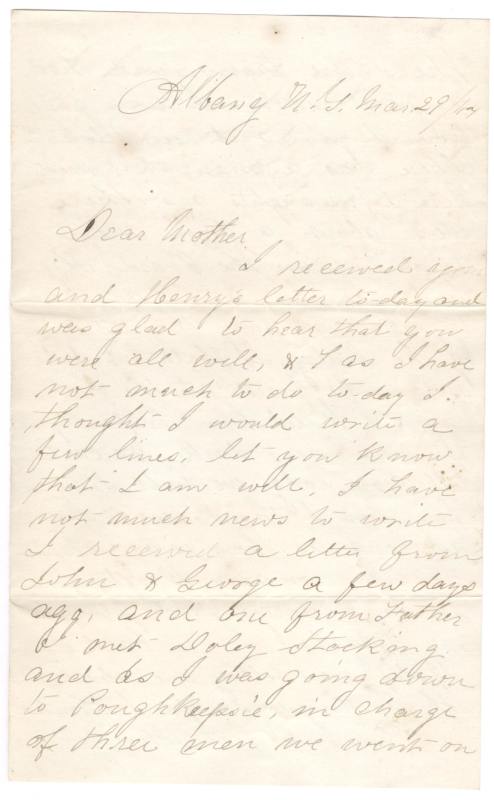 Albany N.Y. Mar. 29
Dear Mother
I received your
and Henry's letter to-day and
was glad to hear that you
were all well, & as I have
not much to do to-day I
thought I would write a
few lines, let you know
that I am well, I have
not much news to write
I received a letter from
John & George a few days
ago, and one from Father
I met Doley Stocking
and as I was going down
to Poughkeepsie, in charge
of three men we went on